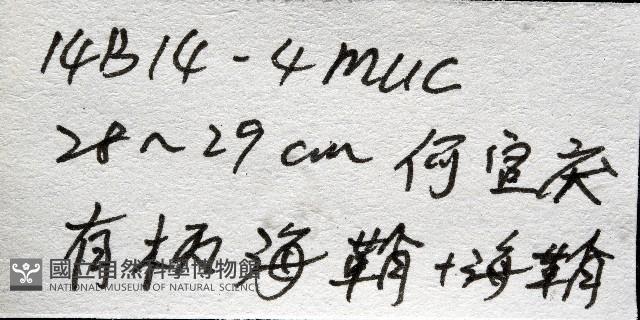 14B14-4 MUC
28~29 cm 何宣庆
有柄海鞘+海鞘
國立自然科學博物館
NATIONAL MUSEUM OF NATURAL SCIENCE